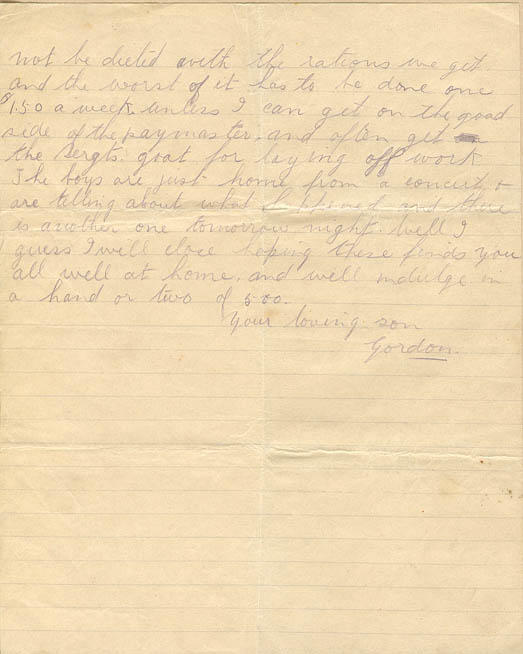 not be dieted with the rations we get
and the worst of it has to be done one
$1.50 a week. unless I can get on the good
side of the paymaster. and often get
the Sergts. goat for laying off work
The boys are just home from a concert, &
are telling about what happened and there
is another one tomorrow night. Well I
guess I will close hoping these finds you
all well at home. and well indulge in
a hand or two of 500.
Your loving son
Gordon.